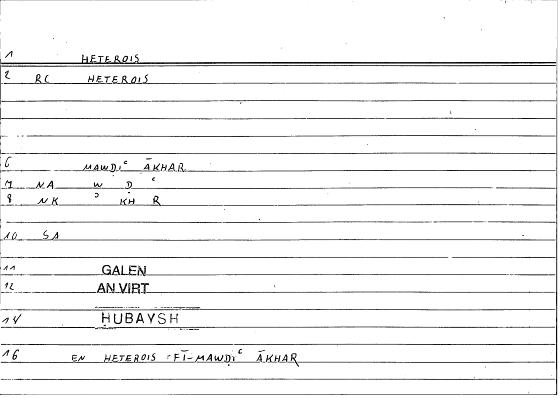 1 HETEROIS
2 RC HETEROIS
6 MAWḌIʿ ĀKHAR
7 NA W Ḍ ʿ
8 NK ʾ KH R
10 SA
11 GALEN
12 AN VIRT
14 HUBAYSH
16 EN HETEROIS FĪ-MAWḌIʿ ĀKHAR